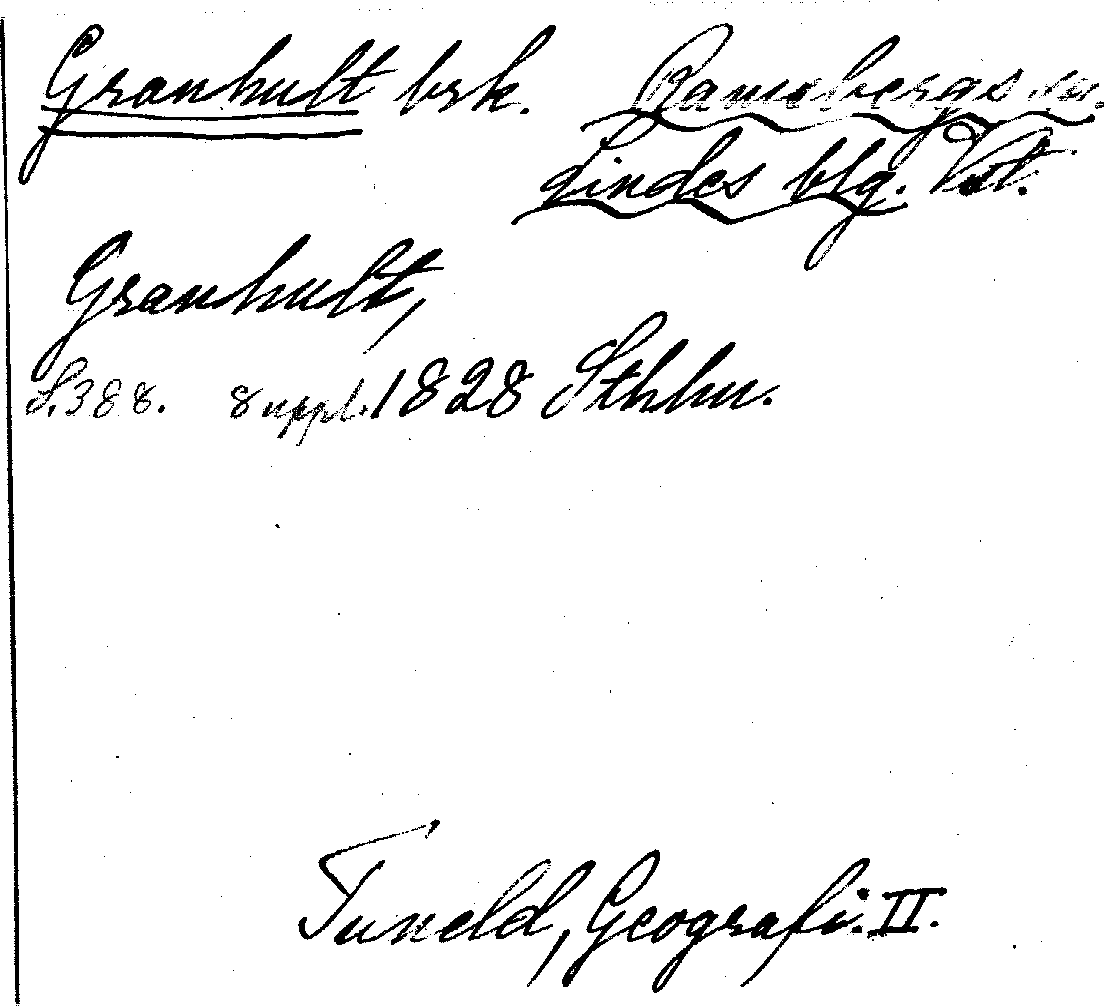 Granhult brk. Ramsbergs sn.
Lindes blg. Vstm.
Granhult,
S. 388. Suppl. 1828 Sthlm.
Tuneld, Geografi. II.